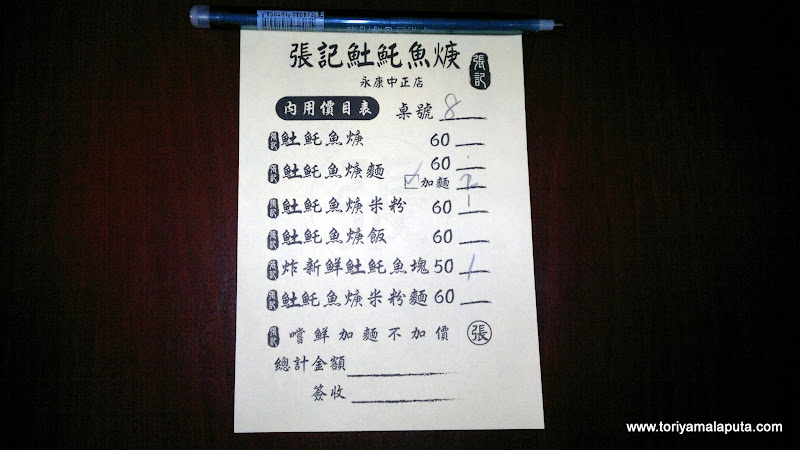 張記𩵚魠魚焿
張記
永康中正店
內用價目表 桌號 8
張記 𩵚魠魚焿 60
張記 𩵚魠魚焿麵 60
加麵 2
張記 𩵚魠魚焿米粉 60
張記 𩵚魠魚焿飯 60
張記 炸新鮮𩵚魠魚塊 50 1
張記 𩵚魠魚焿米粉麵 60
張記 嚐鮮加麵不加價 張
總計金額
簽收
www.toriyamalaputa.com